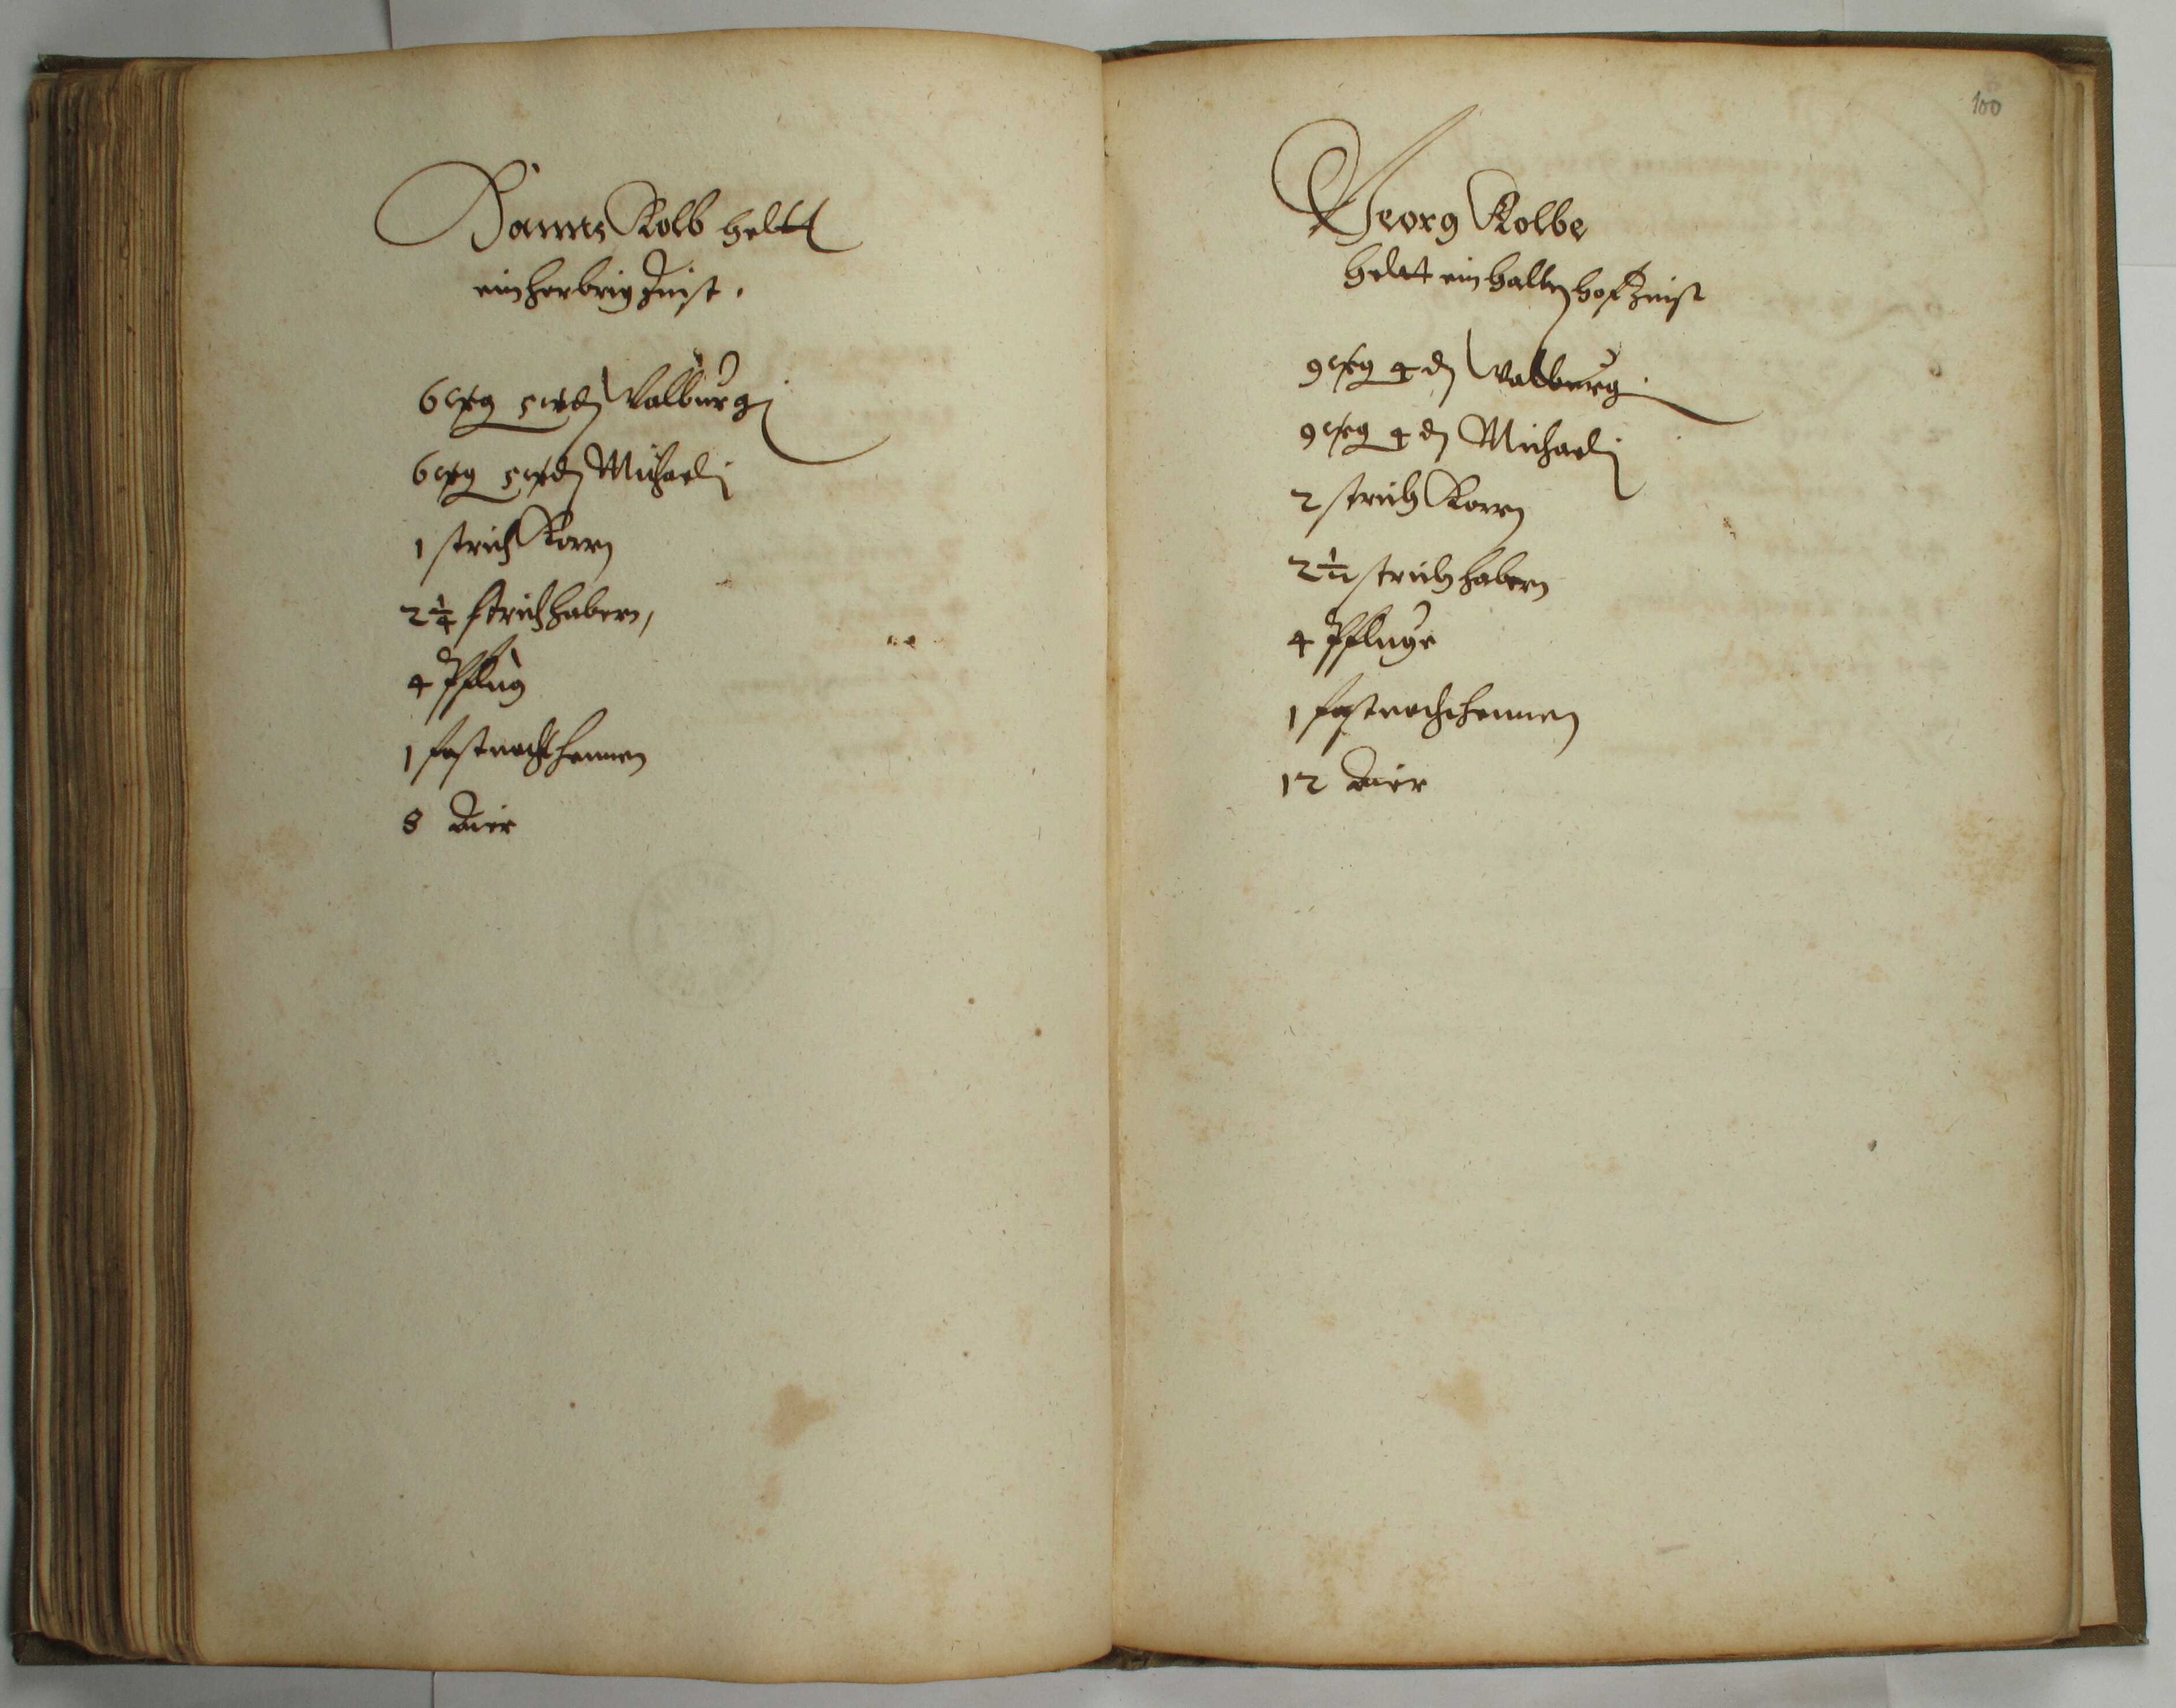 Hanns Kolb heltt
ein herbrig Zinst.
6 gg 5 d Walburgi
6 gg 5 d Michaeli
1 strich Korn
2 1/4 strich habern,
4 Pflug
1 fastnachthennen
8 Aier
100
Georg Kolbe
heltt ein halben hof Zinst
9 gg 4 d Walburgi
9 gg 4 d Michaeli
2 strich Korn
2 1/2 strich habern
4 Pfluge
1 fastnachthennen
12 Aier